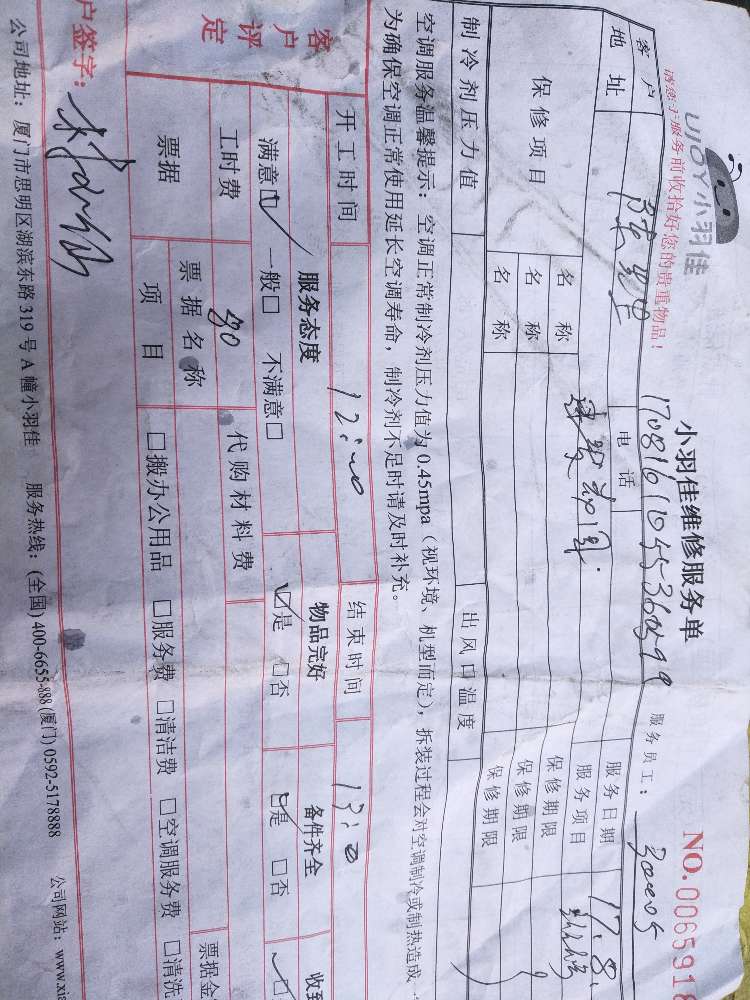 UJOY小羽佳
小羽佳维修服务单
NO.0065918
请您于服务前收拾好您的贵重物品!
170816110455364099
服务员工:
客户
电话
服务日期 17.8.
地址
服务项目
保修项目
名称
保修期限
名称
保修期限
名称
保修期限
制冷剂压力值
出风口温度
空调服务温馨提示: 空调正常制冷剂压力值为0.45mpa(视环境、机型而定), 拆装过程会对空调制冷或制热造成一
为确保空调正常使用延长空调寿命, 制冷剂不足时请及时补充。
开工时间
结束时间
客户评定
服务态度
物品完好
备件齐全
收到
满意☑ 一般□ 不满意□
☑是 □否
☑是 □否
工时费
代购材料费
票据
票据名称
票据金
项目
□搬办公用品 □服务费 □清洁费 □空调服务费 □清洗
户签字:
公司地址: 厦门市思明区湖滨东路319号A幢小羽佳 服务热线: (全国) 400-6655-888 (厦门) 0592-5178888 公司网站: www.xia